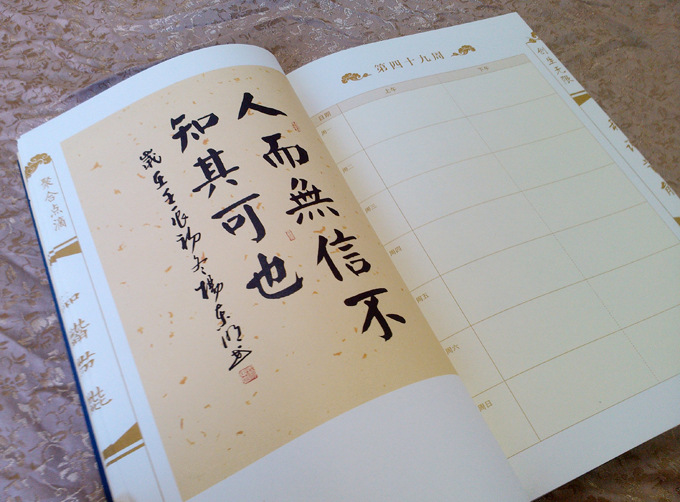 聚合点滴
人而無信不
知其可也
歲在壬辰初冬楊
第四十九周
日期 上午 下午
周一
周二
周三
周四
周五
周六
周日
创造无限